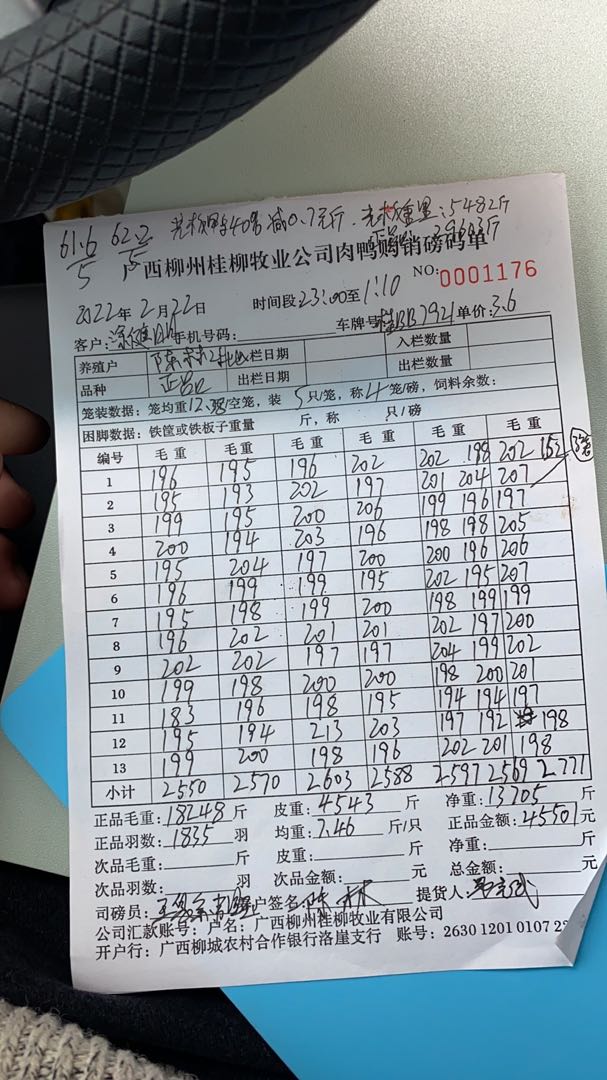 61.6/5 62.2/5 40% 减0.7元/斤. 重量:5482斤
广西柳州桂柳牧业公司肉鸭购销磅码单
NO: 0001176
2022年2月22日 时间段23:00至1:10
客户: 手机号码: 车牌号: 单价:3.6
养殖户 入栏日期 入栏数量
品种 出栏日期 出栏数量
笼装数据: 笼均重12.38/空笼, 装5只/笼, 称4笼/磅, 饲料余数:
困脚数据: 铁筐或铁板子重量 斤, 称 只/磅
编号 毛重 毛重 毛重 毛重 毛重 毛重
1 196 195 196 202 202 198 202 152
2 195 193 202 197 201 204 207
3 199 195 200 206 199 196 197
4 200 194 203 196 198 198 205
5 195 204 197 200 200 196 206
6 196 199 199 195 202 195 207
7 195 198 199 200 198 199 199
8 196 202 201 201 202 197 200
9 202 202 197 197 204 199 202
10 199 198 200 200 198 200 201
11 183 196 198 195 194 194 197
12 195 194 213 203 197 192 198
13 199 200 198 196 202 201 198
小计 2550 2570 2603 2588 2597 2569 2771
正品毛重: 18248斤 皮重: 4543斤 净重: 13705斤
正品羽数: 1835羽 均重: 7.46斤/只 正品金额: 45501元
次品毛重: 斤 皮重: 斤 净重: 斤
次品羽数: 羽 次品金额: 元 总金额: 元
司磅员: 户签名: 提货人:
公司汇款账号: 户名: 广西柳州桂柳牧业有限公司
开户行: 广西柳城农村合作银行洛崖支行 账号: 2630 1201 0107 22